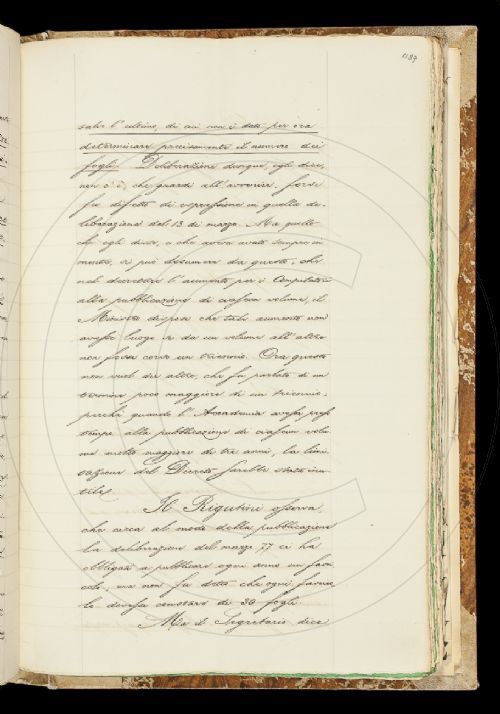 1189
salvo l'ultimo, di cui non è dato per ora
determinare precisamente il numero dei
fogli. Deliberazione dunque, egli dice,
non c'è, che guardi all'avvenire. forse
fu difetto di espressione in quella de-
liberazione del 13 di marzo. Ma quello
che egli disse, e che aveva avuto sempre in
mente, si può desumere da questo, che
nel decretare l'aumento per i Compilatori
alla pubblicazione di ciascun volume, il
Ministro dispose che tale aumento non
avesse luogo se da un volume all'altro
non fosse corso un triennio. Ora questo
non vuol dir altro, che fu parlato di un
termine poco maggiore di un triennio,
perchè quando l'Accademia avesse posto
tempo alla pubblicazione di ciascun volu
me molto maggiore di tre anni, la limi
tazione del Decreto sarebbe stata inu
tile.
Il Rigutini osserva
che circa al modo della pubblicazione
la deliberazione del marzo 77 ci ha
obbligati a pubblicare ogni anno un fasci
colo, ma non fu detto che ogni fascico
lo dovesse constare di 30 fogli.
Ma il Segretario dice